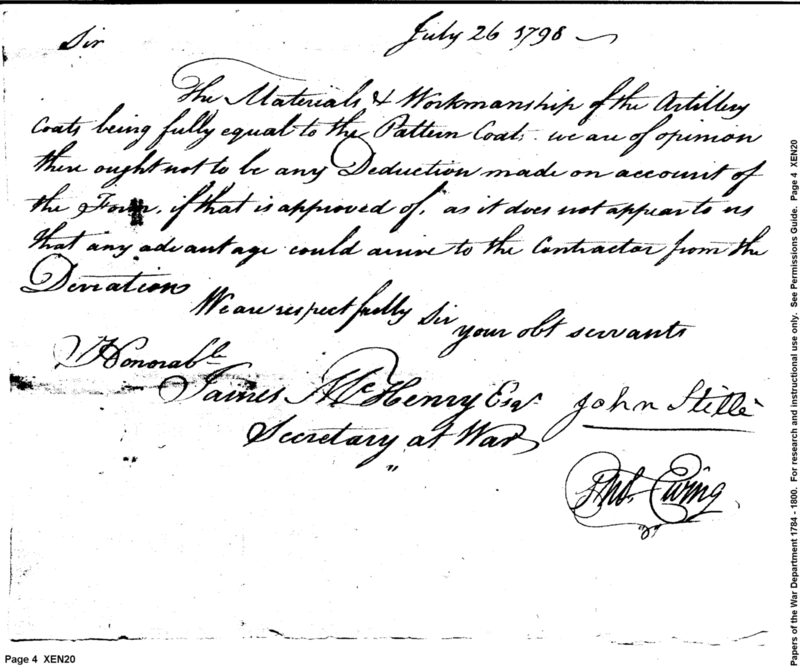 July 26 1798
Sir
The Materials & Workmanship of the Artillery
Coats being fully equal to the Pattern Coat. we are of opinion
there ought not to be any Deduction made on account of
the Form, if that is approved of, as it does not appear to us
that any advantage could arrive to the Contractor from the
Deviation
We are respectfully Sir
your obt servants
Honorable
James McHenry Esqr
John Stillé
Secretary at War
Thos. Ewing
Page 4 XEN20
Papers of the War Department 1784 - 1800. For research and instructional use only. See Permissions Guide. Page 4 XEN20